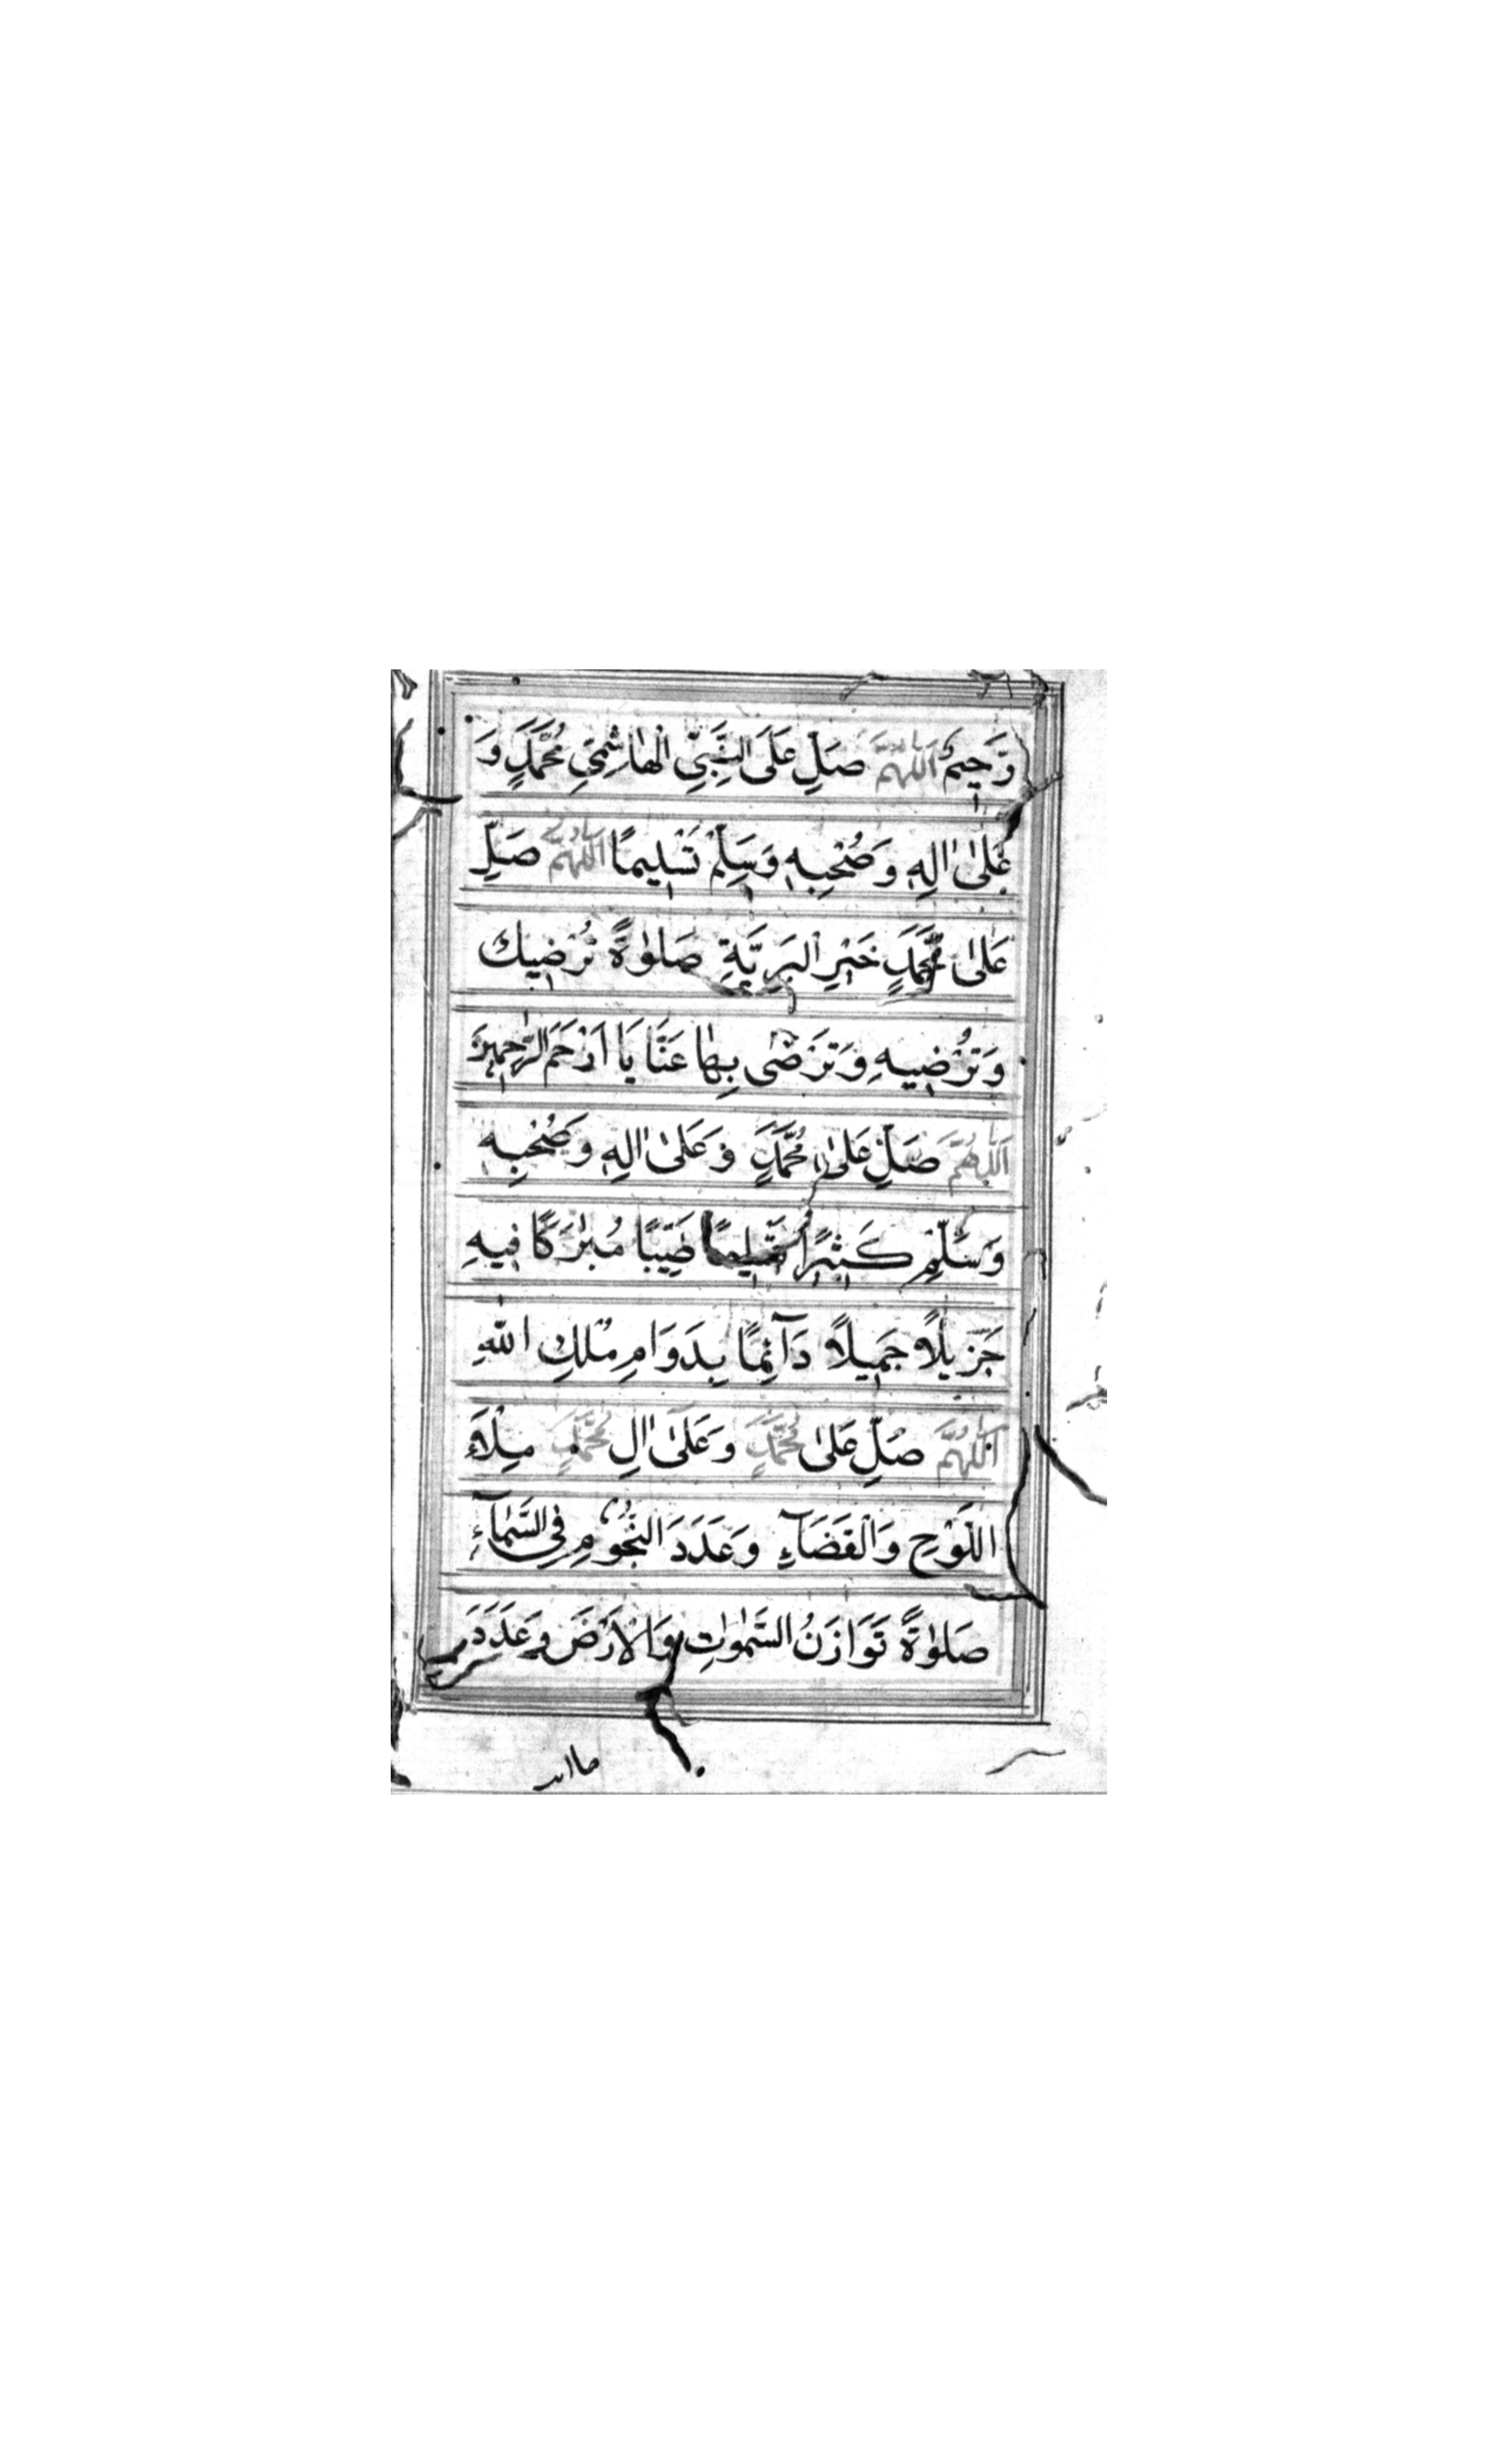 وَّحِيمٌ اَللّٰهُمَّ صَلِّ عَلَى النَّبِيِّ الْهَاشِمِيِّ مُحَمَّدٍ وَ
عَلٰى اٰلِهٖ وَصَحْبِهٖ وَسَلِّمْ تَسْلِيمًا اَللّٰهُمَّ صَلِّ
عَلٰى مُحَمَّدٍ خَيْرِ الْبَرِيَّةِ صَلٰوةً تُرْضِيكَ
وَتُرْضِيهِ وَتَرْضٰى بِهَا عَنَّا يَا اَرْحَمَ الرّٰحِمِينَ
اَللّٰهُمَّ صَلِّ عَلٰى مُحَمَّدٍ وَعَلٰى اٰلِهٖ وَصَحْبِهٖ
وَسَلِّمْ كَثِيرًا تَسْلِيمًا طَيِّبًا مُبٰرَكًا فِيهِ
جَزِيلًا جَمِيلًا دَآئِمًا بِدَوَامِ مُلْكِ اللّٰهِ
اَللّٰهُمَّ صَلِّ عَلٰى مُحَمَّدٍ وَعَلٰى اٰلِ مُحَمَّدٍ مِلْاَءَ
اللَّوْحِ وَالْفَضَآءِ وَعَدَدَ النُّجُوْمِ فِي السَّمَآءِ
صَلٰوةً تَوَازَنُ السَّمٰوٰتِ وَالْاَرْضَ وَعَدَدَ